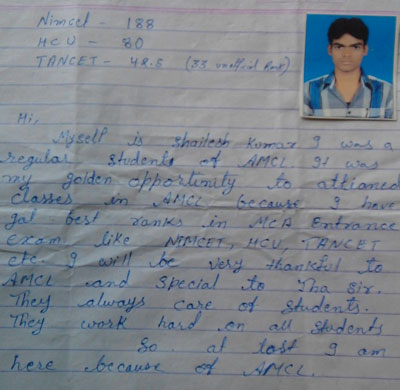 Nimcet - 188
HCU - 80
TANCET - 48.5 (33 unofficial Rank)
Hi,
Myself is Shailesh Kumar I was a
regular students of AMCL It was
my golden opportunity to attianed
classes in AMCL because I have
got best ranks in MCA Entrance
Exam like NIMCET, HCU, TANCET
etc. I will be very thankful to
AMCL and special to Jha Sir.
They always care of students.
They work hard on all students
So at last I am
here because of AMCL.